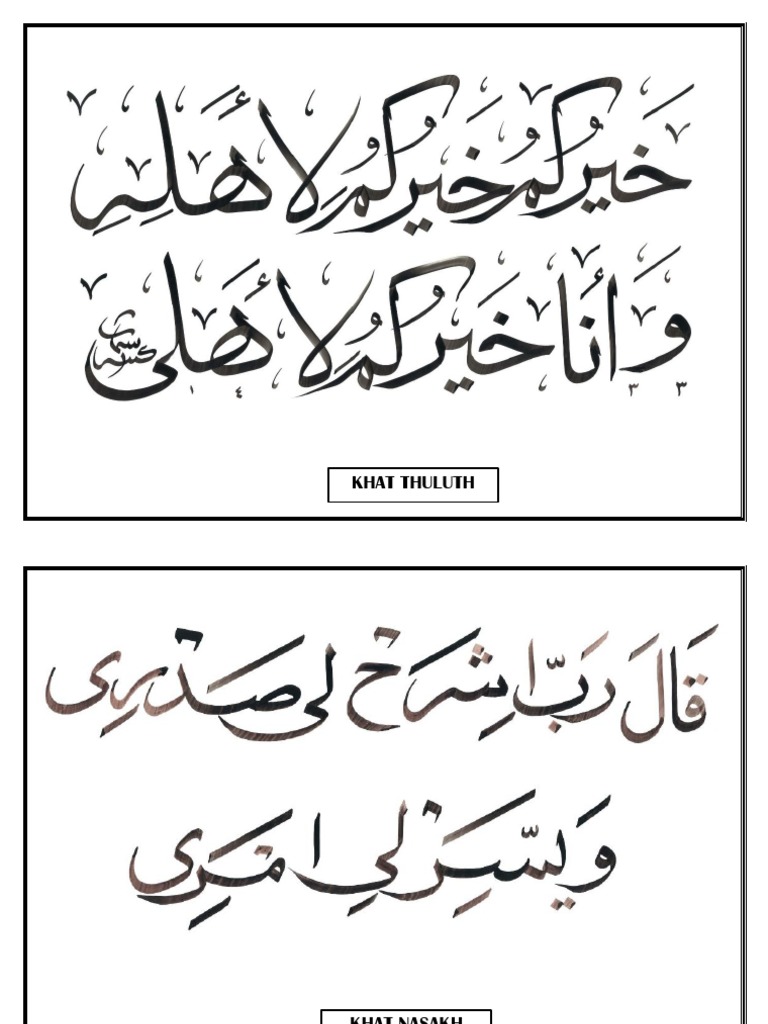 خَيْرُكُمْ خَيْرُكُمْ لِأَهَلِهِ
وَأَنَا خَيْرُكُمْ لِأَهَلِى
١ ٤ ٣ ٣
KHAT THULUTH
قَالَ رَبِّ اشِرَحْ لِى صَدْرِى
وَيَسِّرْ لِي امَرِي
KHAT NASAKH